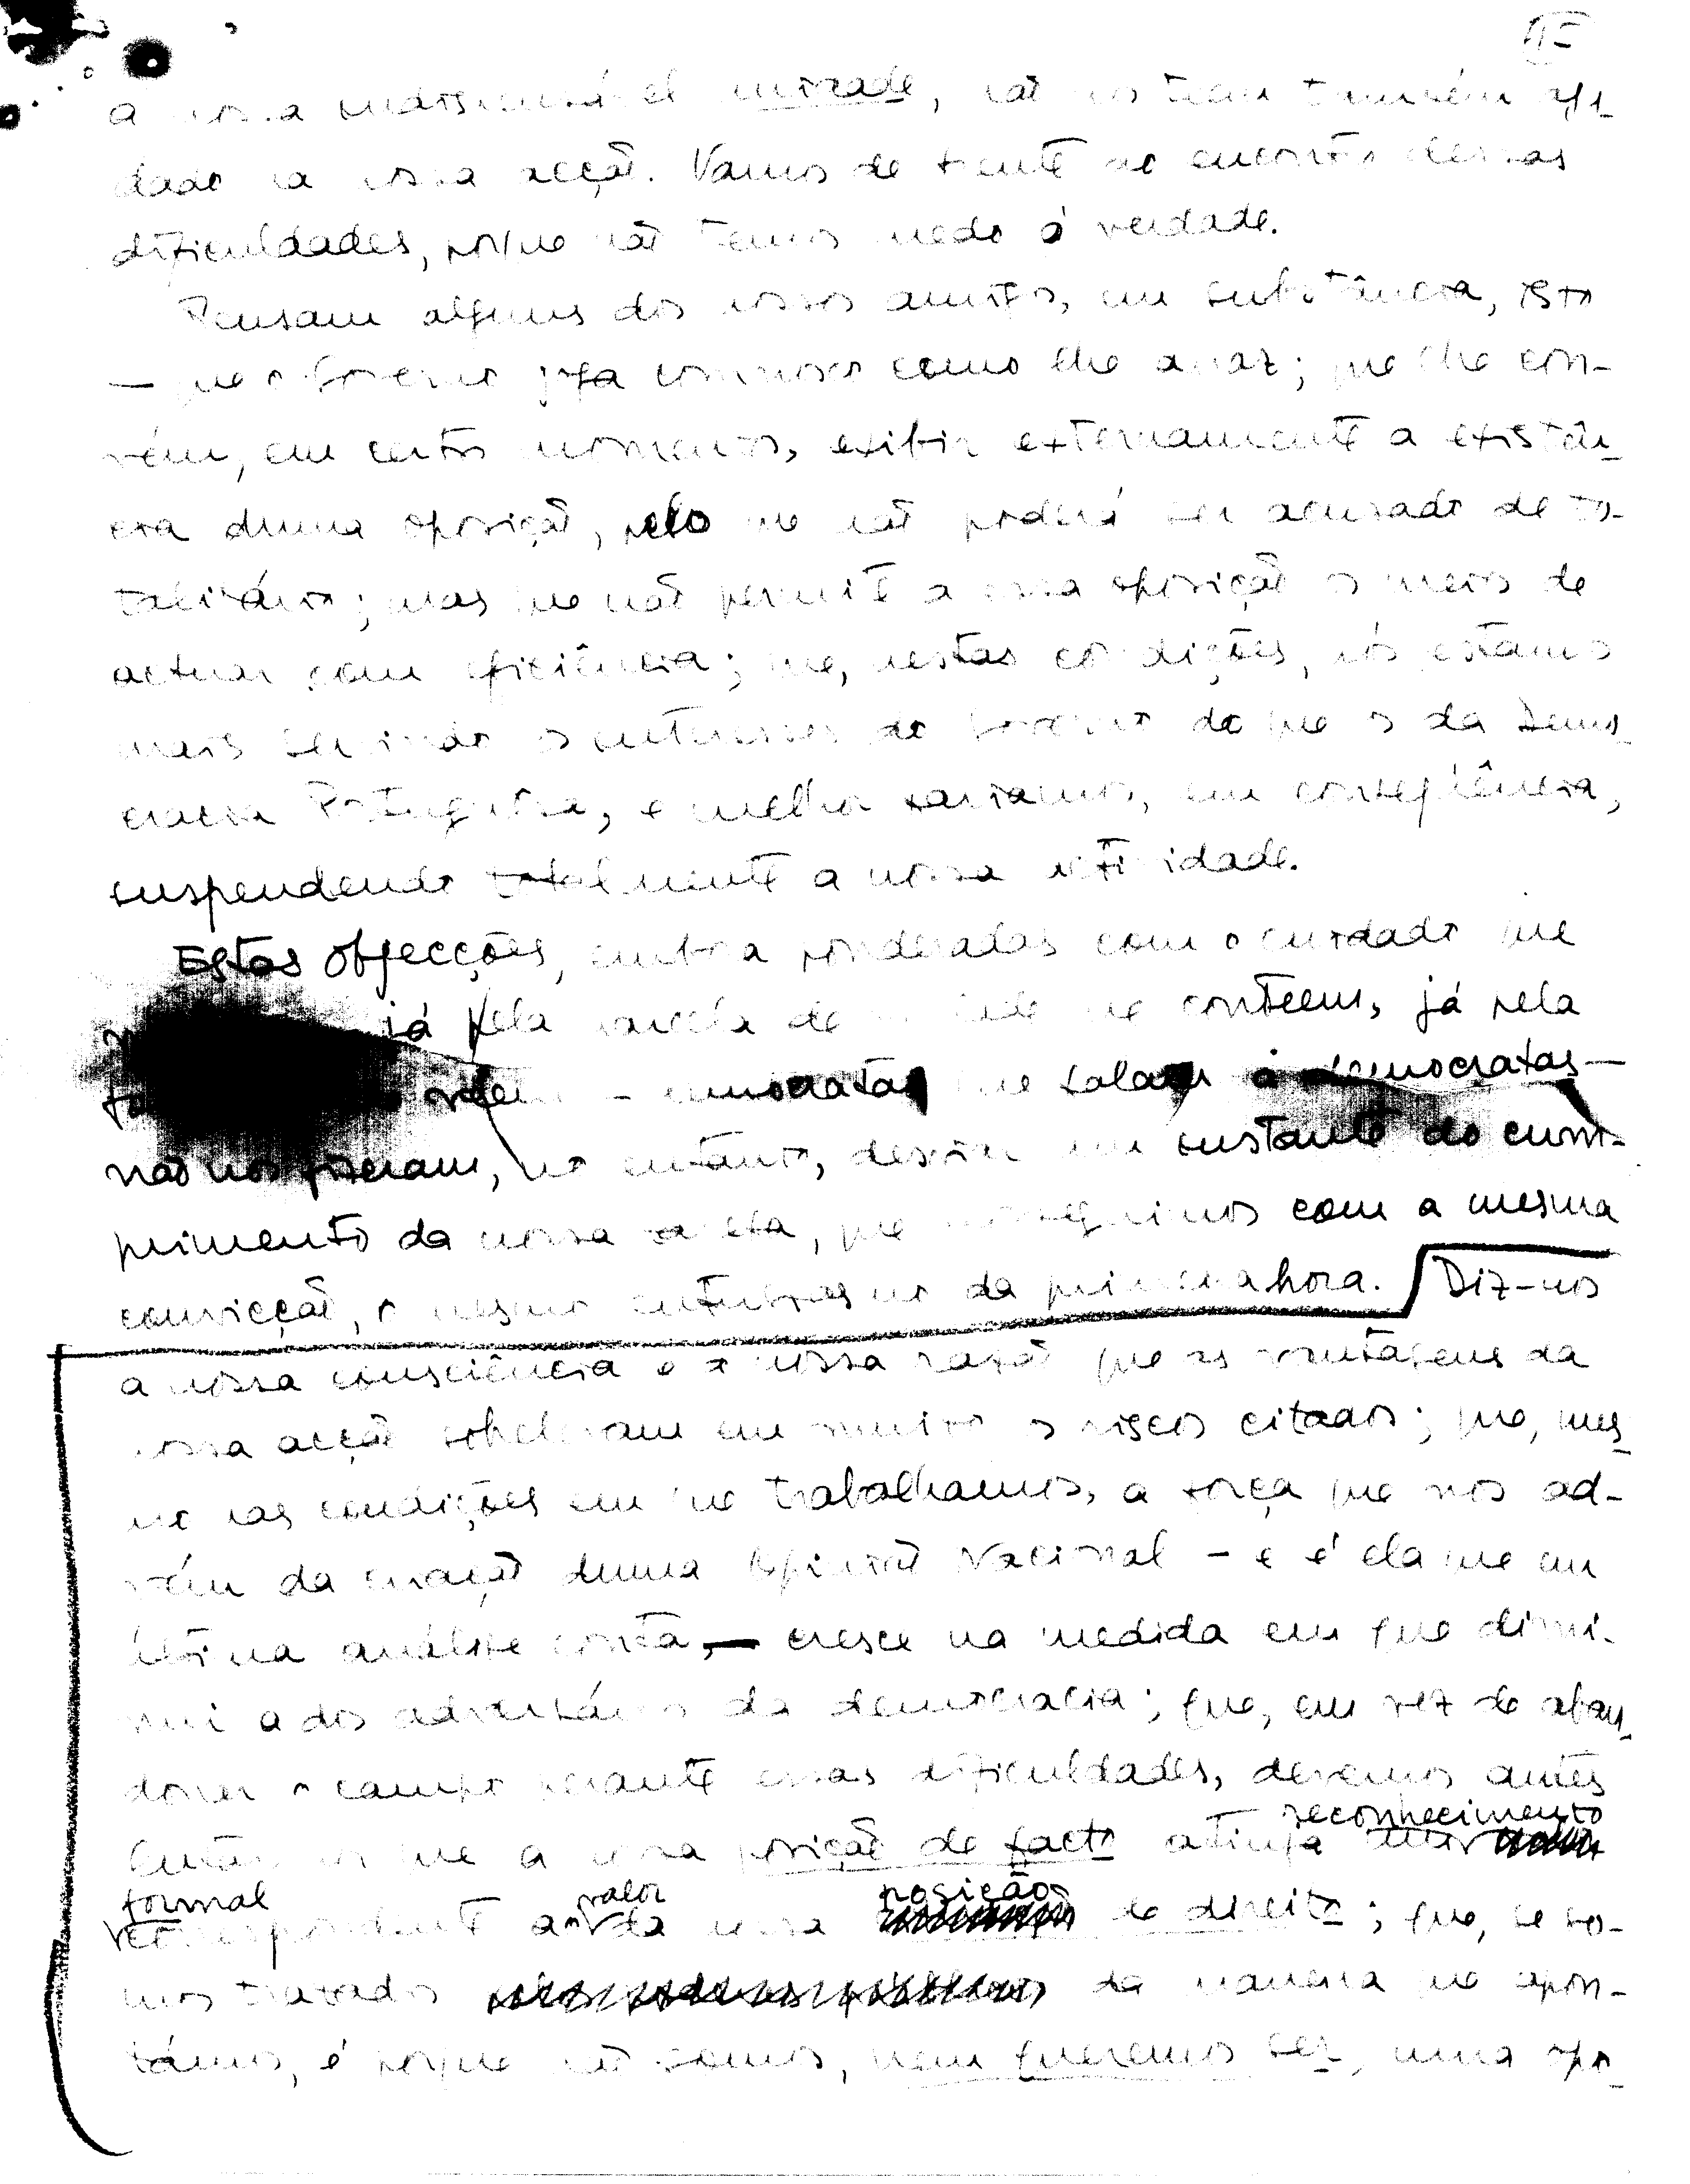 a nossa indispensável unidade, não nos teem também aju-
dado na nossa acção. Vamos de frente ao encontro dessas
dificuldades, porque não temos medo à verdade.
Pensam alguns dos nossos amigos, em substância, isto
— que o Governo joga connosco como lhe apraz; que lhe con-
vém, em certos momentos, exibir externamente a existên-
cia duma oposição, pelo que não poderá ser acusado de to-
talitário; mas que não permite a essa oposição os meios de
actuar com eficiência; que, nestas condições, nós estamos
mais servindo os interesses do Governo do que os da Demo-
cracia Portuguesa, e melhor fariamos, em conseqüência,
suspendendo totalmente a nossa actividade.
Estas objecções, embora ponderadas com o cuidado que
já pela parcela de verdade que conteem, já pela
democratas que falam a democratas —
não nos fizeram, no entanto, desviar um instante do cum-
primento da nossa tarefa, que prosseguimos com a mesma
convicção, o mesmo entusiasmo da primeira hora. Diz-nos
a nossa consciência e a nossa razão que as vantagens da
nossa acção sobelevam em muito os riscos citados; que, mes-
mo nas condições em que trabalhamos, a força que nos ad-
vém da criação duma Opinião Nacional — e é ela que em
última análise conta, — cresce na medida em que dimi-
nui a dos adversários da democracia; que, em vez de aban-
donar o campo perante essas dificuldades, devemos antes
lutar para que a nossa posição de facto atinja reconhecimento
formal correspondente ao valor da nossa posição de direito; que, se so-
mos tratados da maneira que apon-
támos, é porque não somos, nem queremos ser, uma opo-